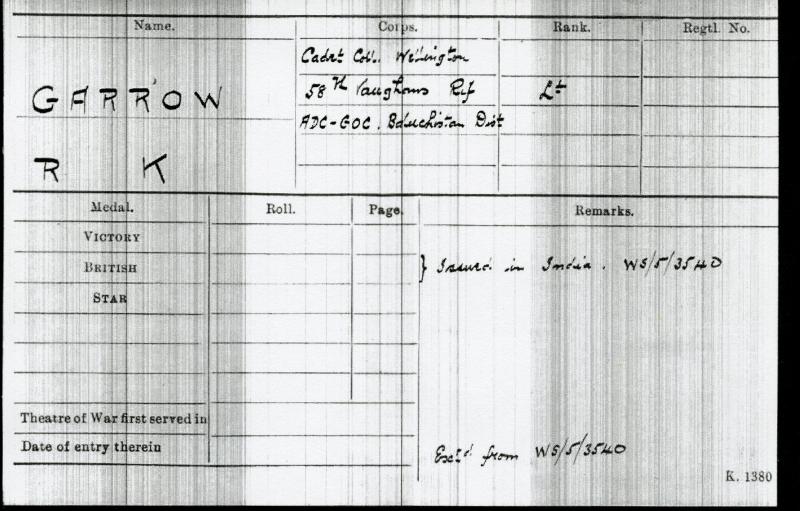 Name. Corps. Rank. Regtl. No.
Cadet Coll. Wellington
GARROW 58th Vaughans Rif Lt
ADC-GOC. Baluchistan Dist
R K
Medal. Roll. Page. Remarks.
VICTORY
BRITISH } Issued in India. WS/5/3540
STAR
Theatre of War first served in
Date of entry therein Ext'd from WS/5/3540
K. 1380